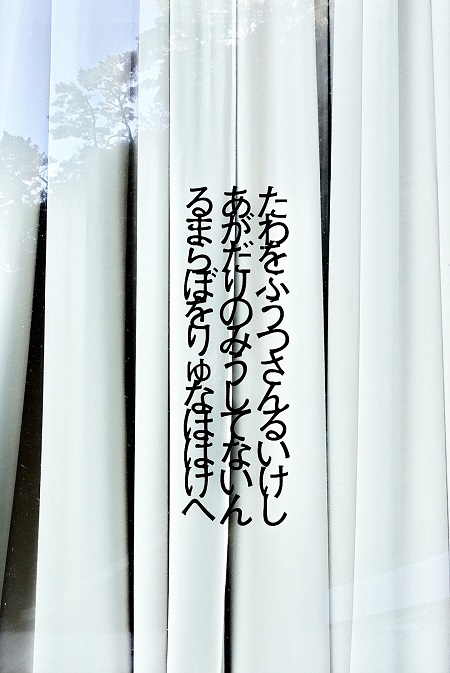 たわをふうつさんるいけし
あがだりのみうしてないん
るまらぼをりゅなははけへ